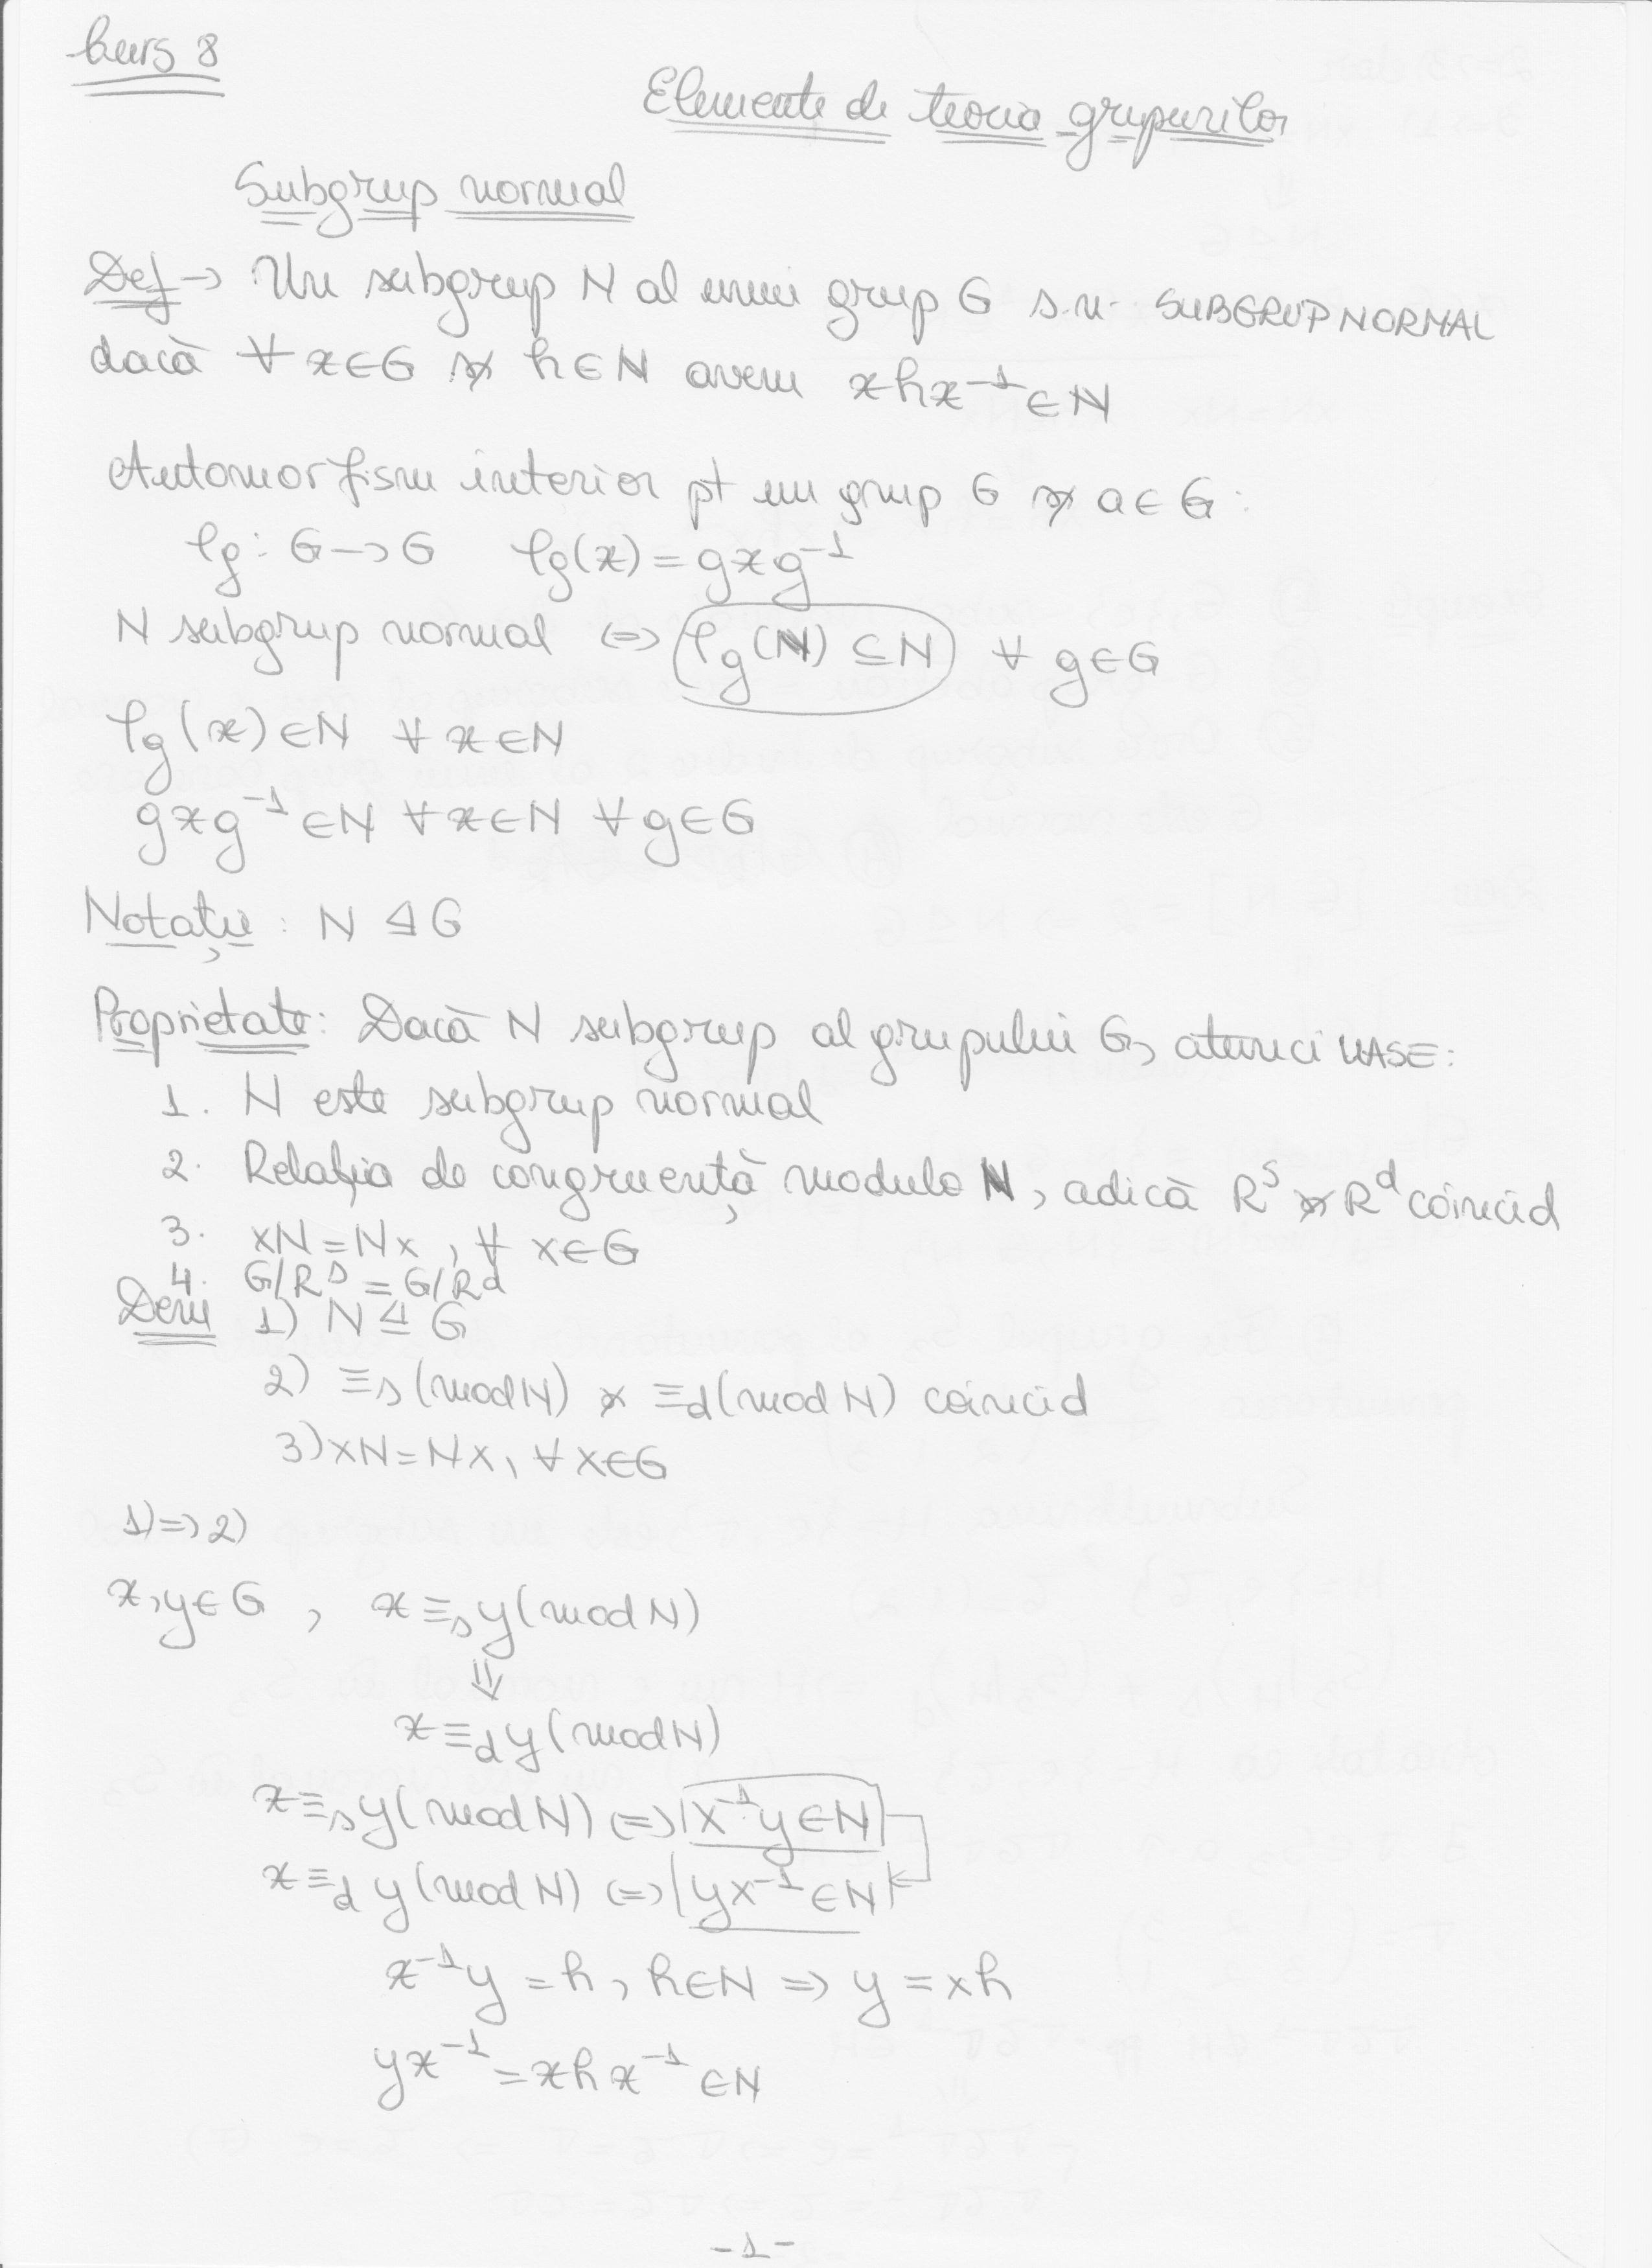 Curs 8
Elemente de teoria grupurilor
Subgrup normal
Def → Un subgrup N al unui grup G s.n. SUBGRUP NORMAL
dacă ∀ x∈G și h∈N avem xhx⁻¹∈N
Automorfism interior pt un grup G și a∈G:
φg: G→G φg(x)=gxg⁻¹
N subgrup normal (=) φg(N) ⊆N ∀ g∈G
φg(x)∈N ∀ x∈N
gxg⁻¹∈N ∀x∈N ∀g∈G
Notație: N ⊴ G
Proprietate: Dacă N subgrup al grupului G, atunci UASE:
1. N este subgrup normal
2. Relația de congruență modulo N, adică Rˢ și Rᵈ coincid
3. xN=Nx, ∀ x∈G
4. G/Rˢ = G/Rd
Dem 1) N ⊴ G
2) ≡s(mod N) și ≡d(mod N) coincid
3) xN=Nx, ∀ x∈G
1)=>2)
x,y∈G , x≡s y(mod N)
⇓
x≡d y(mod N)
x≡s y(mod N) (=) x⁻¹y∈N
x≡d y(mod N) (=) yx⁻¹∈N
x⁻¹y=h, h∈N => y=xh
yx⁻¹=xhx⁻¹∈N
-1-